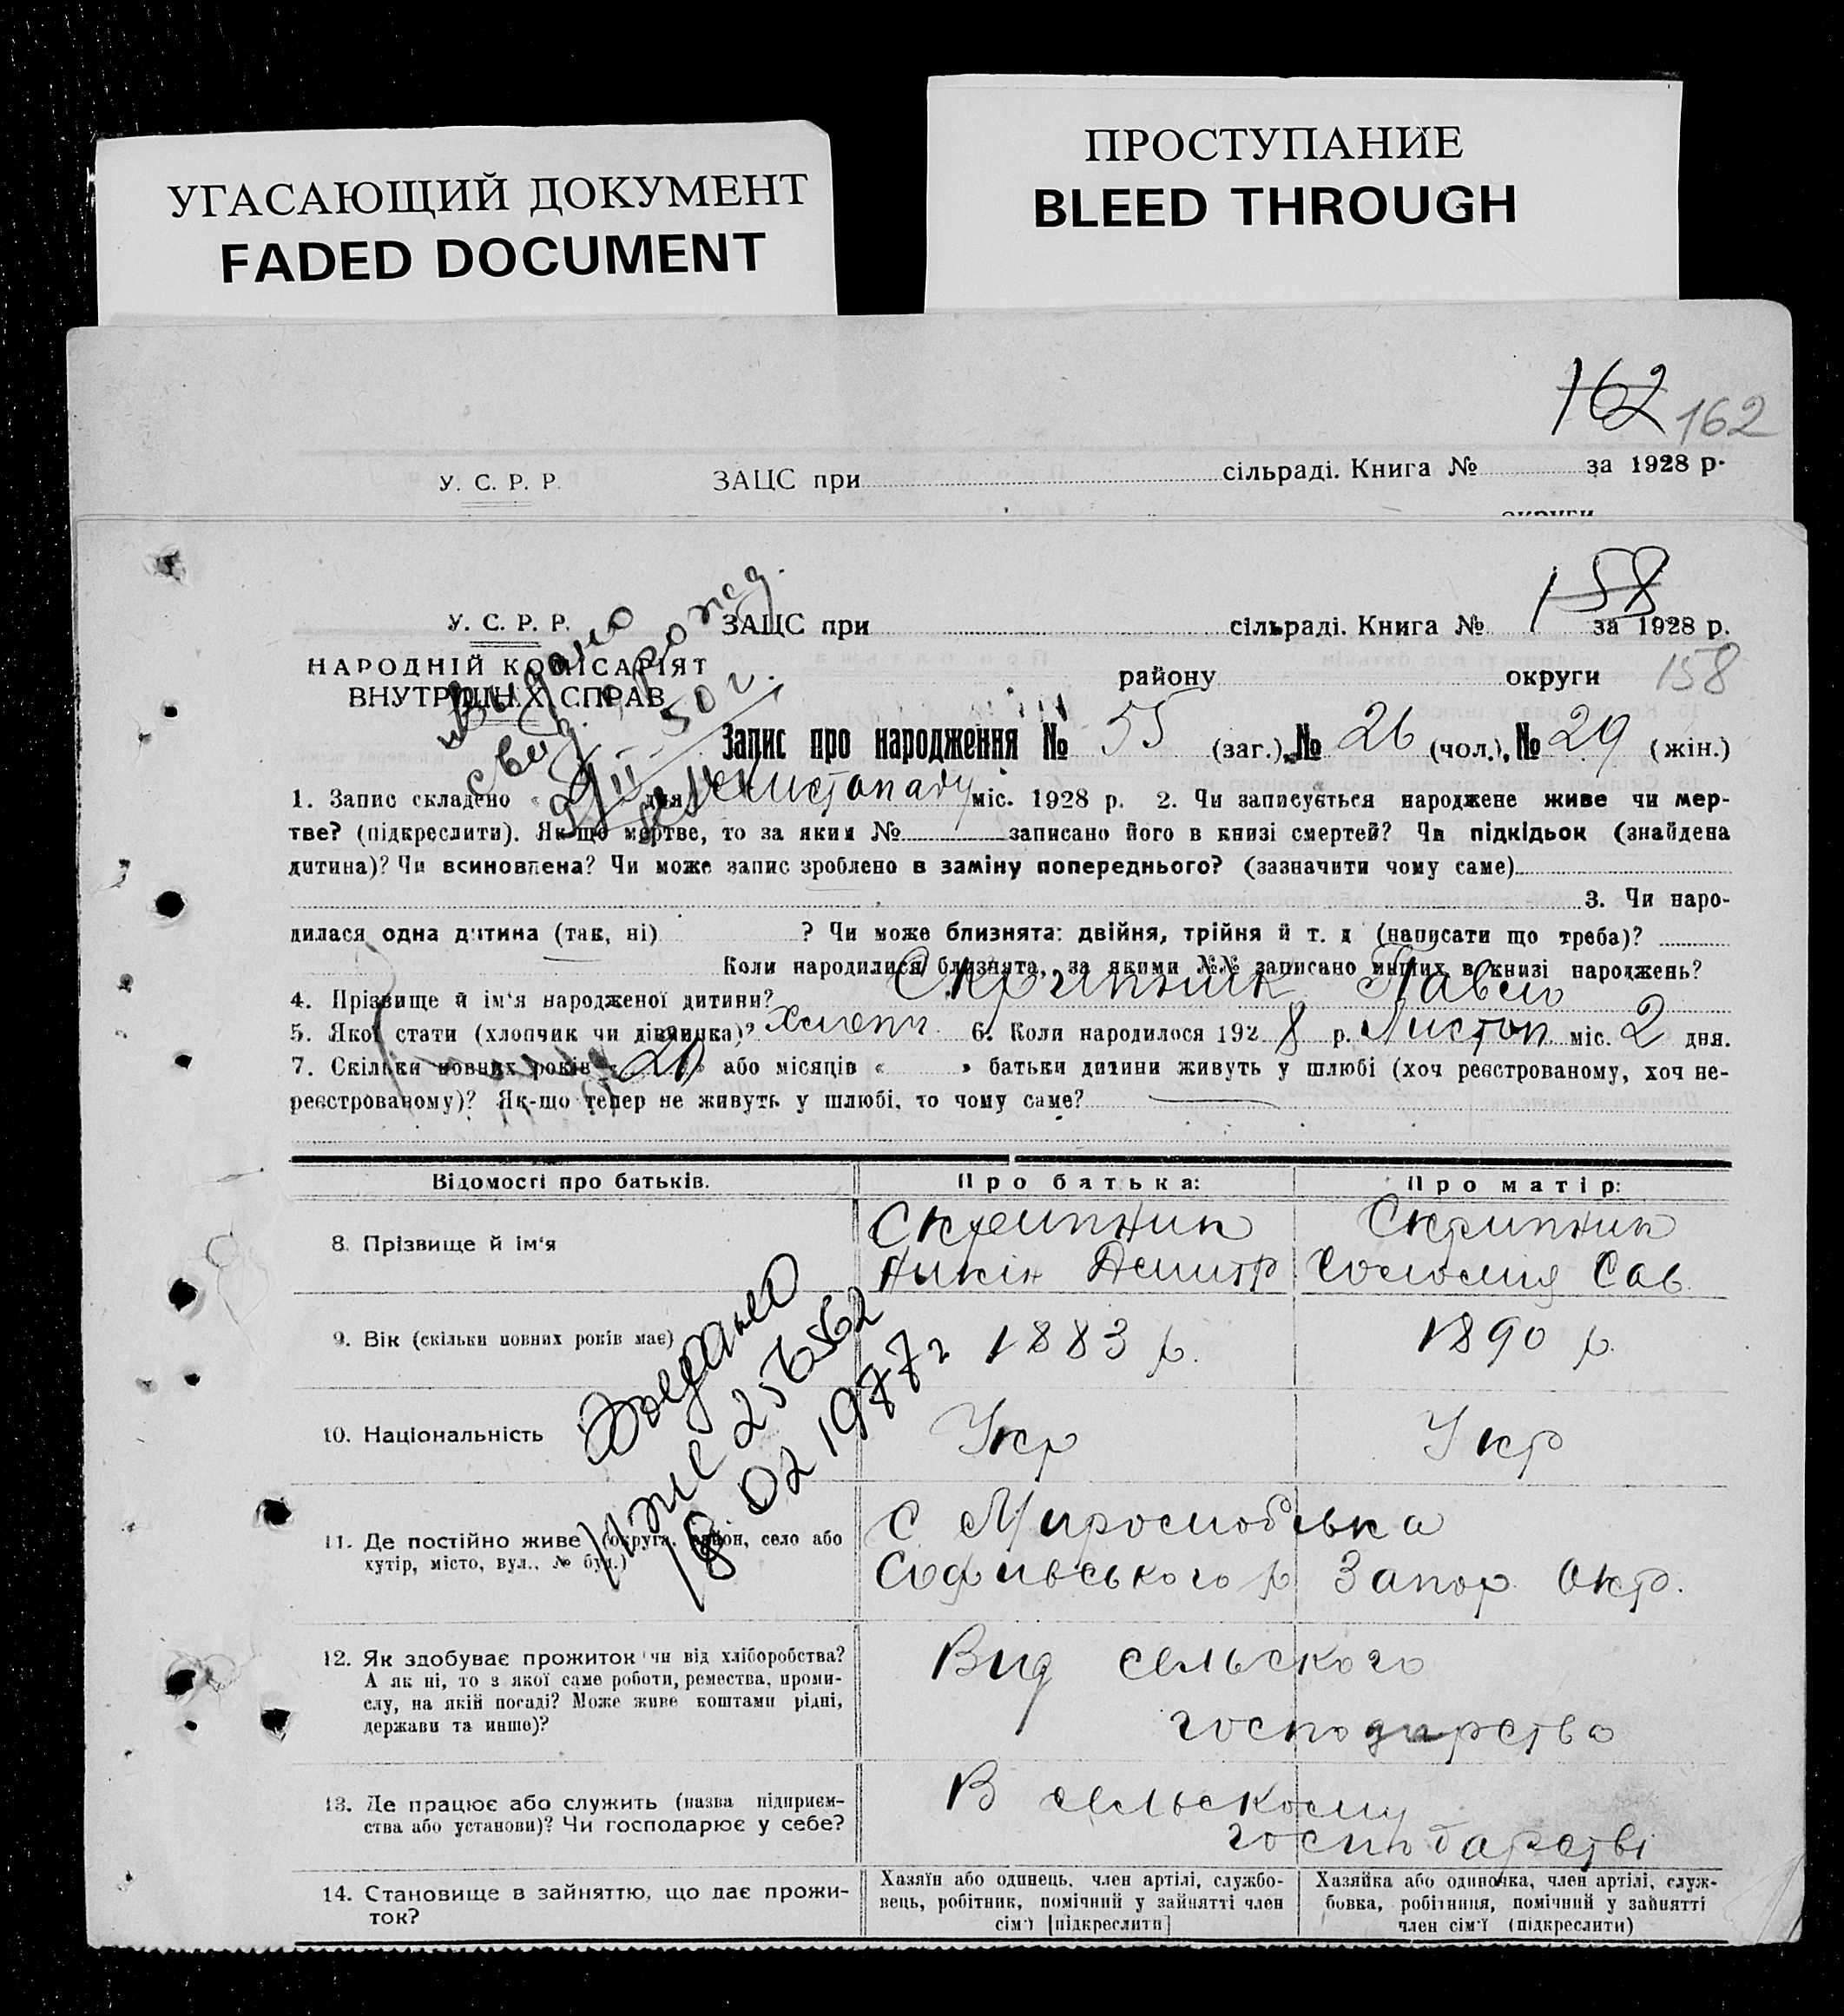 УГАСАЮЩИЙ ДОКУМЕНТ
FADED DOCUMENT
ПРОСТУПАНИЕ
BLEED THROUGH
162 162
У. С. Р. Р. ЗАЦС при сільраді. Книга № за 1928 р.
округи
158
У. С. Р. Р. ЗАЦС при сільраді. Книга № за 1928 р.
НАРОДНІЙ КОМІСАРІЯТ
ВНУТРІШНІХ СПРАВ
району округи 158
Видано
50 г.
Запис про народження № 55 (заг.), № 26 (чол.), № 29 (жін.)
1. Запис складено « дня листопаду міс. 1928 р. 2. Чи записується народжене живе чи мер-
тве? (підкреслити). Як-що мертве, то за яким № записано його в книзі смертей? Чи підкідьок (знайдена
дитина)? Чи всиновлена? Чи може запис зроблено в заміну попереднього? (зазначити чому саме)
3. Чи наро-
дилася одна дитина (так, ні) ? Чи може близнята: двійня, трійня й т. д (написати що треба)?
Коли народилися близнята, за якими №№ записано инших в книзі народжень?
4. Прізвище й ім'я народженої дитини? Скрипник Павло
5. Якої стати (хлопчик чи дівчинка)? Хлопч. 6. Коли народилося 1928 р. Листоп. міс. 2 дня.
7. Скільки повних років « 20 » або місяців « » батьки дитини живуть у шлюбі (хоч реєстрованому, хоч не-
реєстрованому)? Як-що тепер не живуть у шлюбі, то чому саме?
Відомості про батьків. Про батька: Про матір:
8. Прізвище й ім'я
Скрипник Скрипник
Дмитр Соломия Сав.
9. Вік (скільки повних років має) 1883 р. 1890 р.
10. Національність Укр Укр
Видано
256562
18 02 1977 г
11. Де постійно живе (округа, район, село або
хутір, місто, вул., № буд.)
С
Софиівського р Запор Окр.
12. Як здобуває прожиток (чи від хліборобства?
А як ні, то з якої саме роботи, ремества, проми-
слу, на якій посаді? Може живе коштами рідні,
держави та инше)?
Вид сельского
господарства
13. Де працює або служить (назва підприєм-
ства або установи)? Чи господарює у себе?
В сельскому
господарстві
14. Становище в зайняттю, що дає прожи-
ток?
Хазяїн або одинець, член артілі, службо-
вець, робітник, помічний у зайнятті член
сім'ї [підкреслити]
Хазяйка або одиночка, член артілі, служ-
бовка, робітниця, помічний у зайнятті
член сім'ї (підкреслити)